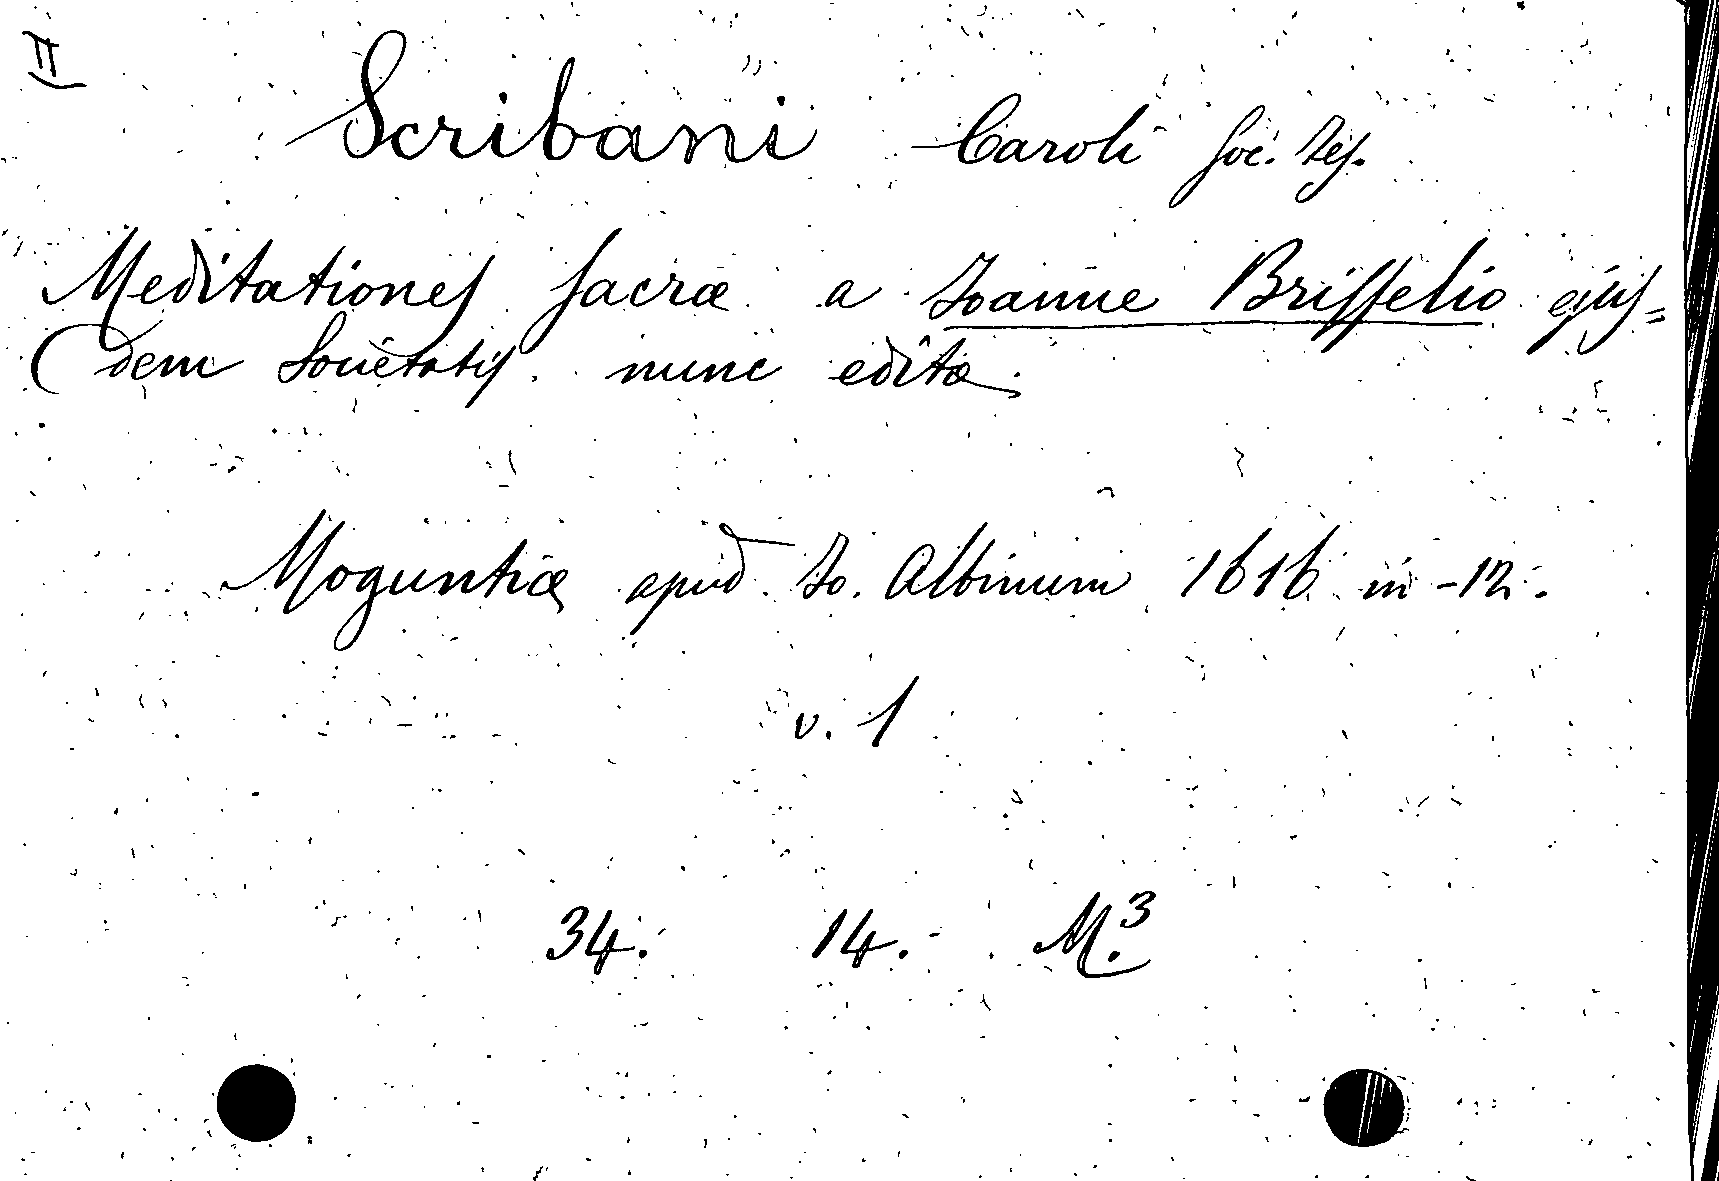 II
Scribani Caroli Soc. Jes.
Meditationes sacræ a Joanne Brisselio ejus=
dem Societatis nunc editæ.
Moguntiæ apud Jo. Albinum 1616 in-12.
v. 1
34. 14. M.³